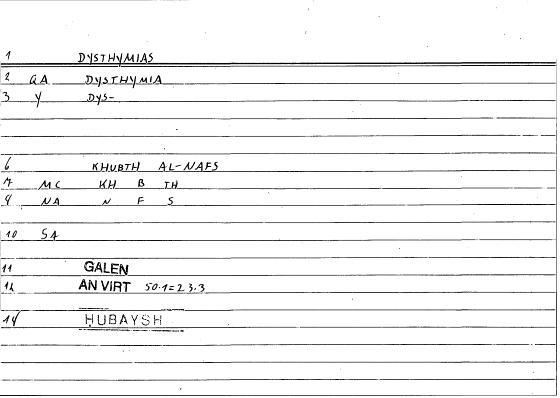 1 DYSTHYMIAS
2 GA DYSTHYMIA
3 Y DYS-
6 KHUBTH AL-NAFS
7 MC KH B TH
8 NA N F S
10 SA
11 GALEN
12 AN VIRT 50.1=23.3
14 HUBAYSH